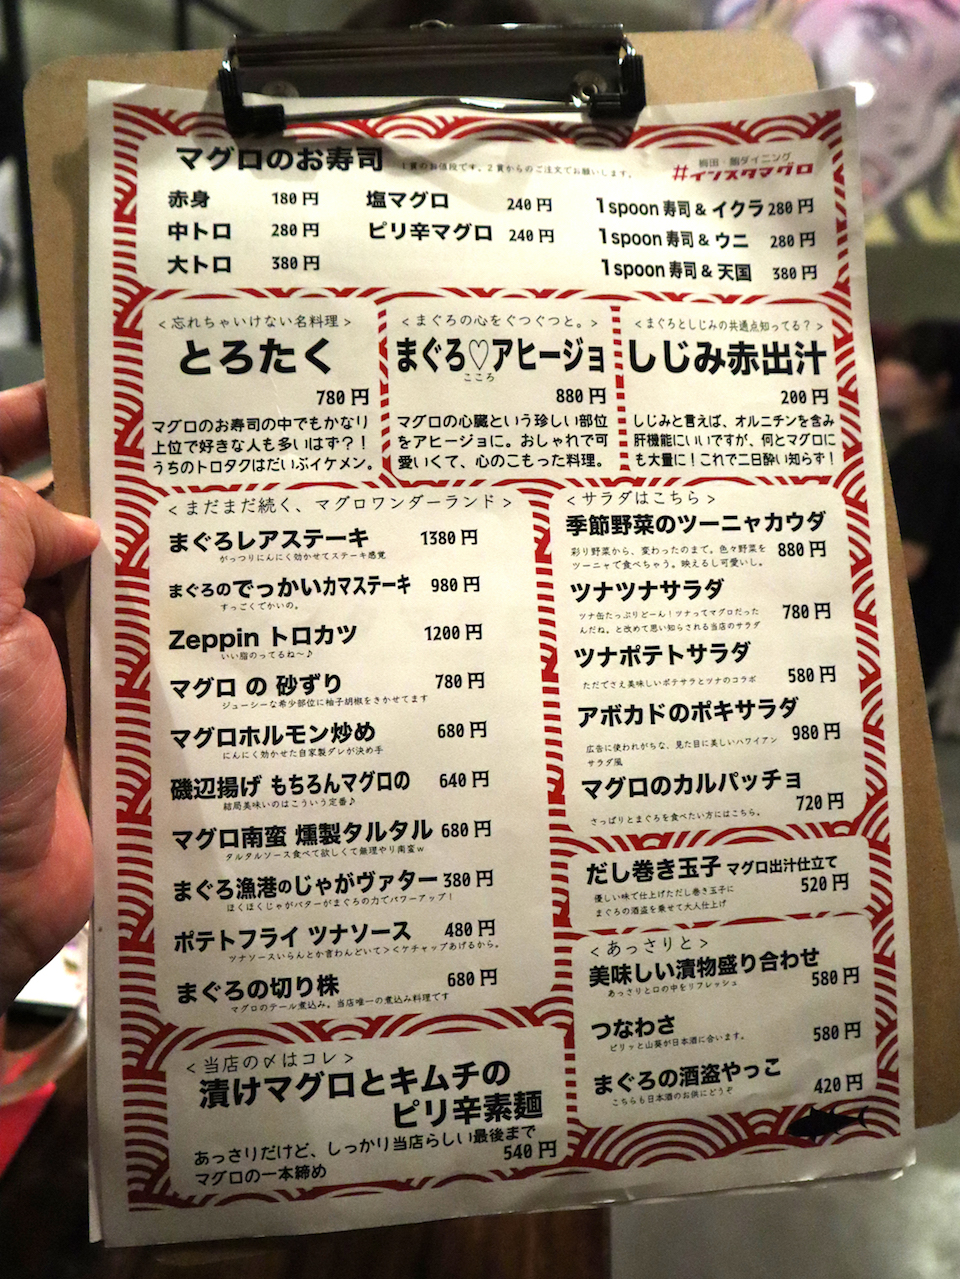 マグロのお寿司 1貫のお値段です。2貫からのご注文でお願いします。
梅田・鮪ダイニング
#インスタマグロ
赤身 180円
中トロ 280円
大トロ 380円
塩マグロ 240円
ピリ辛マグロ 240円
1spoon寿司&イクラ 280円
1spoon寿司&ウニ 280円
1spoon寿司&天国 380円
<忘れちゃいけない名料理>
とろたく
780円
マグロのお寿司の中でもかなり
上位で好きな人も多いはず?!
うちのトロタクはだいぶイケメン。
<まぐろの心をぐつぐつと。>
まぐろ♡アヒージョ
こころ
880円
マグロの心臓という珍しい部位
をアヒージョに。おしゃれで可
愛いくて、心のこもった料理。
<まぐろとしじみの共通点知ってる?>
しじみ赤出汁
200円
しじみと言えば、オルニチンを含み
肝機能にいいですが、何とマグロに
も大量に!これで二日酔い知らず!
<まだまだ続く、マグロワンダーランド>
まぐろレアステーキ 1380円
がっつりにんにく効かせてステーキ感覚
まぐろのでっかいカマステーキ 980円
すっごくでかいの。
Zeppin トロカツ 1200円
いい脂のってるね〜♪
マグロ の 砂ずり 780円
ジューシーな希少部位に柚子胡椒をきかせてます
マグロホルモン炒め 680円
にんにく効かせた自家製ダレが決め手
磯辺揚げ もちろんマグロの 640円
結局美味いのはこういう定番♪
マグロ南蛮 燻製タルタル 680円
タルタルソース食べて欲しくて無理やり南蛮w
まぐろ漁港のじゃがヴァター 380円
ほくほくじゃがバターがまぐろの力でパワーアップ!
ポテトフライ ツナソース 480円
ツナソースいらんとか言わんどいて><ケチャップあげるから。
まぐろの切り株 680円
マグロのテール煮込み。当店唯一の煮込み料理です
<当店の〆はコレ>
漬けマグロとキムチの
ピリ辛素麺
あっさりだけど、しっかり当店らしい最後まで
マグロの一本締め
540円
<サラダはこちら>
季節野菜のツーニャカウダ
彩り野菜から、変わったのまで。色々野菜を
ツーニャで食べちゃう。映えるし可愛いし。
880円
ツナツナサラダ
ツナ缶たっぷりどーん!ツナってマグロだった
んだね。と改めて思い知らされる当店のサラダ
780円
ツナポテトサラダ
ただでさえ美味しいポテサラとツナのコラボ
580円
アボカドのポキサラダ
広告に使われがちな、見た目に美しいハワイアン
サラダ風
980円
マグロのカルパッチョ
720円
さっぱりとまぐろを食べたい方にはこちら。
だし巻き玉子 マグロ出汁仕立て
520円
優しい味で仕上げただし巻き玉子に
まぐろの酒盗を乗せて大人仕上げ
<あっさりと>
美味しい漬物盛り合わせ
あっさりと口の中をリフレッシュ
580円
つなわさ
ピリッと山葵が日本酒に合います。
580円
まぐろの酒盗やっこ
こちらも日本酒のお供にどうぞ
420円